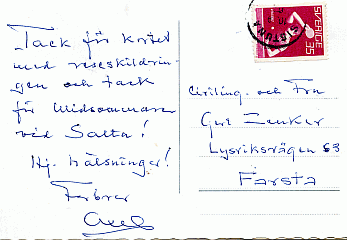 Tack för kortet
med reseskildrin-
gen och tack
för Midsommaren
vid Salta!
Hj. hälsninger!
Farbror
Axel
SVERIGE 35
Civiling. och Fru
Gert Zenker
Lysviksvägen 53
Farsta